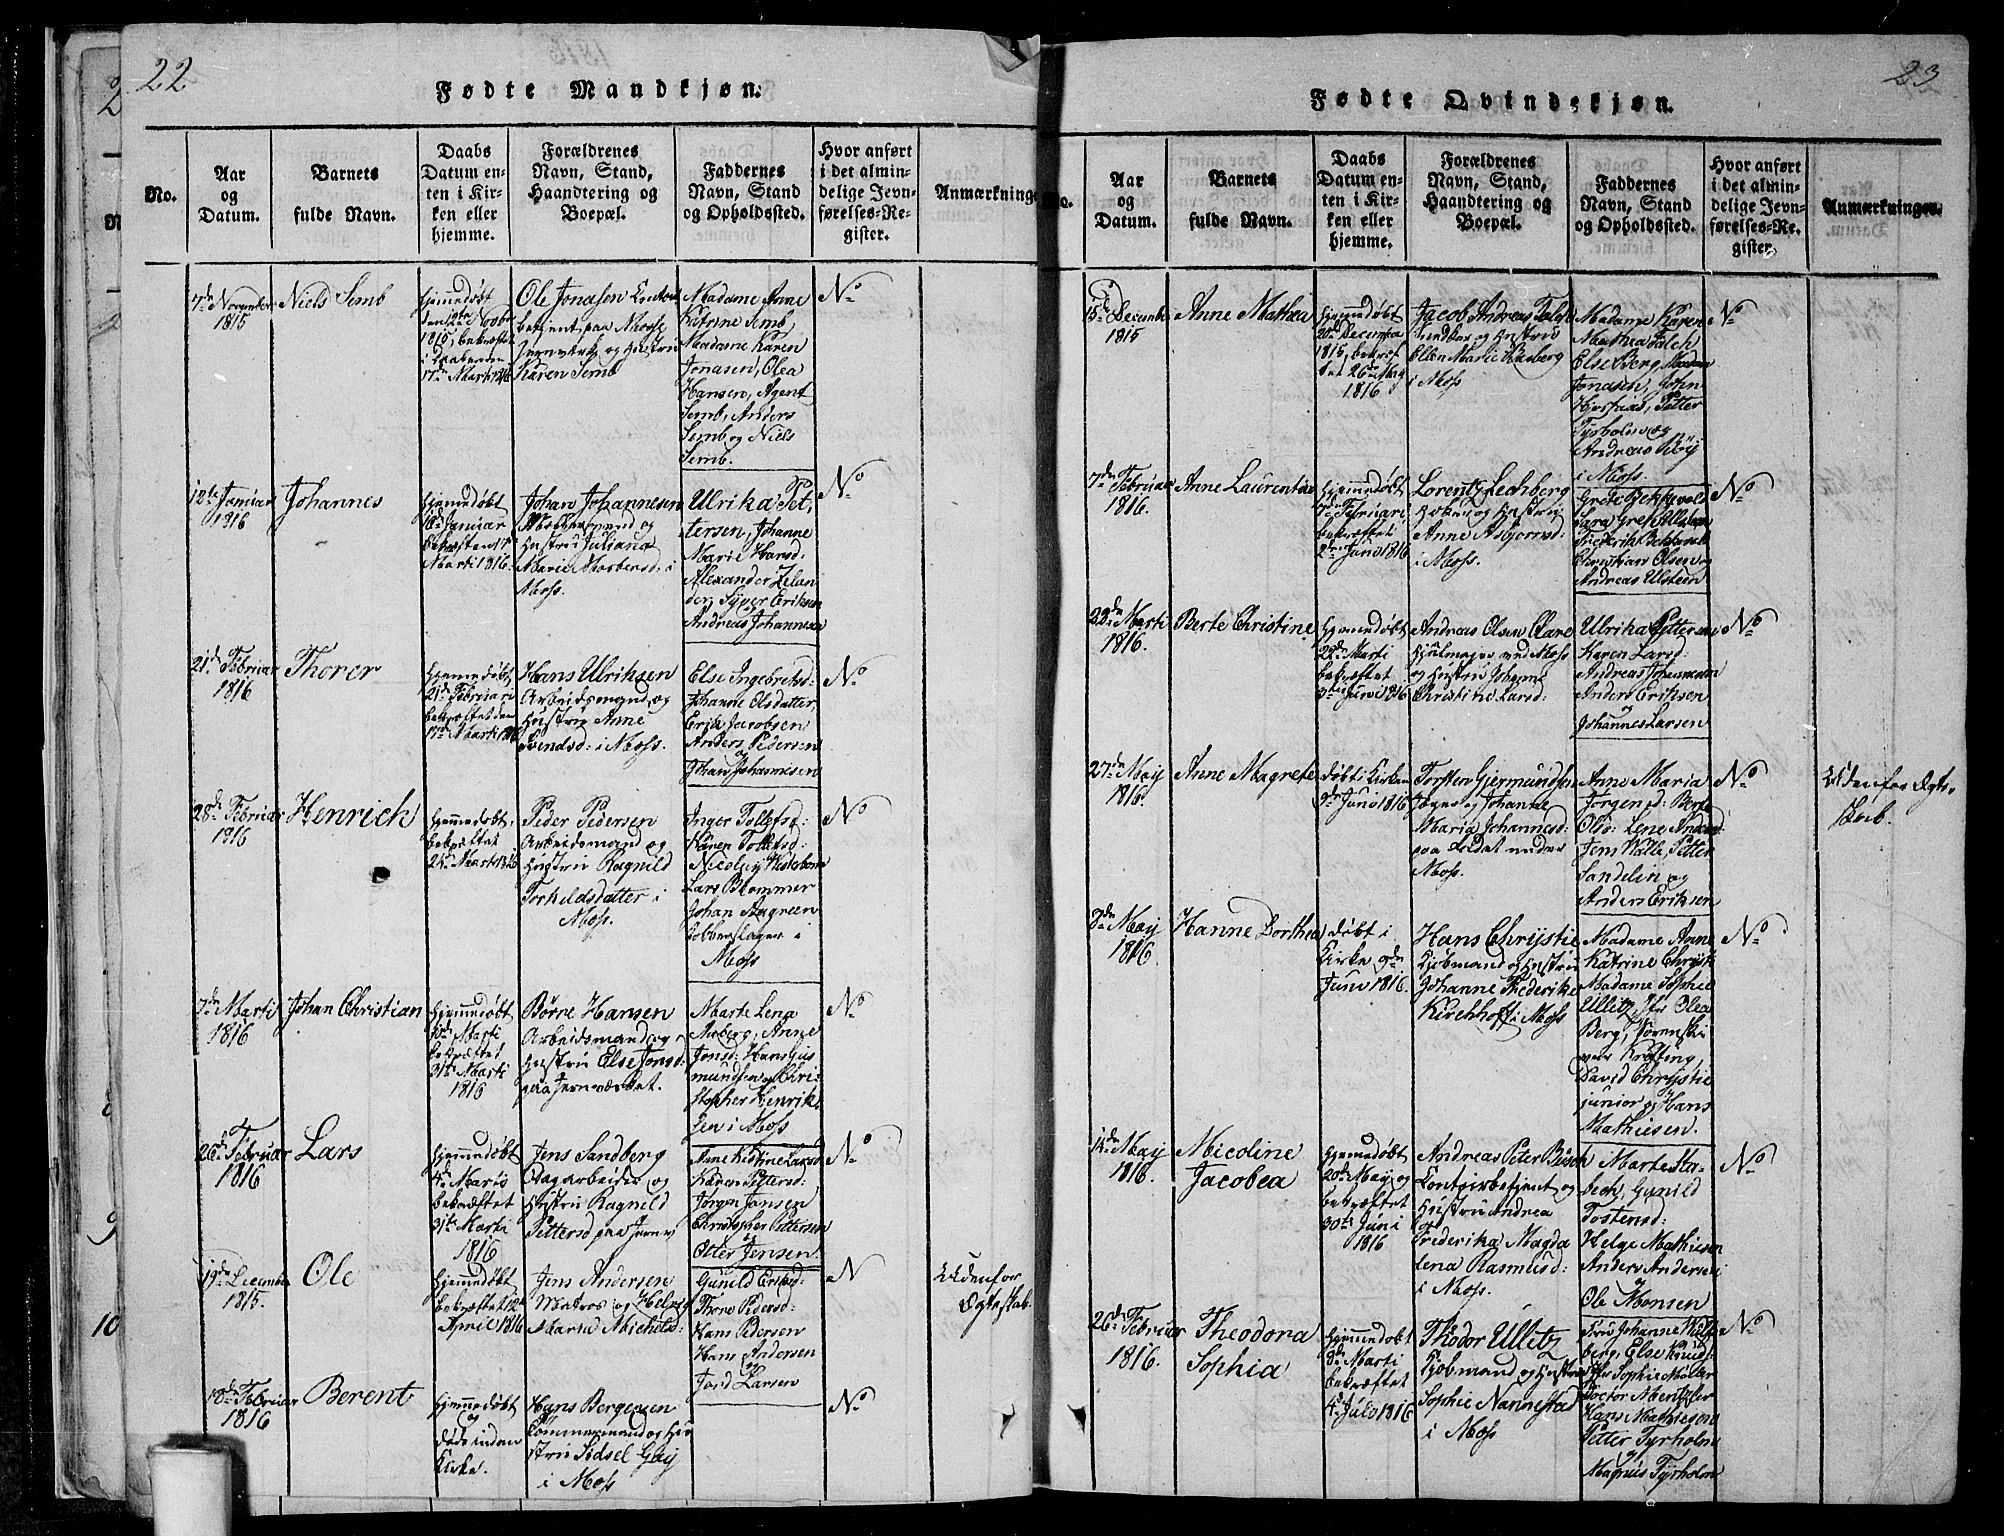 22
Fødte Mandkjøn.
No.
Aar
og
Datum.
Barnets
fulde Navn.
Daabs
Datum en-
ten i Kir-
ken eller
hjemme.
Forældrenes
Navn, Stand,
Haandtering og
Boepæl.
Faddernes
Navn, Stand
og Opholdssted.
Hvor anført
i det almin-
delige Jevn-
førelses-Re-
gister.
Anmærkninge
7de November
1815
Niels Semb
Hjemmedøbt
den 12te Novbr
1815, bekræftet
17de Marti 1816
Ole Jonasen Contoir
betjent paa Mosse
Jernværk og Hustru
Karen Semb
Madame Anne
Katrine Semb
Madame Karen
Jonasen, Olea
Hansen, Agent
Semb, Anders
Semb og Niels
Semb.
No
12te Januar
1816
Johannes
Hjemmedøbt
Januar
bekræftet 17
Marti 1816
Johan Johannesen
og
Hustru Juliana
Marie Morbensd: i
Moss.
Ulrika Pet-
tersen, Johanne
Marie Harsd:
Alexander Zelan
der, Syver Eriksen
Andreas Johannesen
No
21de Februar
1816
Thorer
Hjemmedøbt
21de Februari
bekræftet den
17de Marti 1816
Hans Ulriksen
Arbeidsmand og
Hustru Anne
Svendsd: i Moss.
Else Ingebretsd:
Johanne Olsdatter
Erik Jacobsen
Anders Pedersen
og
Johan Johannesen
No
28de Februar
1816
Henrich
Hjemmedøbt
bekræftet
24de Marti 1816
Peder Pedersen
Arbeidsmand og
Hustru Ragnild
Torkildsdatter i
Moss.
Inger Tollefsd:
Karen Tollefsd:
Nicolay
Lars Blommer
Johan Aagreen
Kobberslager i
Moss
No
7de Marti
1816
Johan Christian
Hjemmedøbt
Marti
bekræftet
31te Marti
1816
Børre Hansen
Arbeidsmand og
Hustru Else Jonsd:
paa Jernværket.
Marte Lena
Aaberg, Anne
Jonsd: Hans Gus
mundsen og Cri-
stopher Henrik-
sen i Moss
No
26de Februar
1816
Lars
Hjemmedøbt
4de Marti
bekræftet
31te Marti
1816
Jens Sandberg
Dagarbeider og
Hustru Ragnild
Pettersd paa Jernv
Anne Kistine Larsd
Karen Pettersd:
Jørgen Jonsen
Christopher Pettersen
og
Otter Jensen.
No
19de December
1815.
Ole
Hjemmedøbt
bekræftet 12te
April 1816
Jens Andersen
Matros og Helge
Maria Michelsd:
Gunild Eriksd:
Thore Pedersd:
Hans Pedersen
Hans Andersen
og
Jord Larsen
N
Udenfor
Ægteskab.
18de Februar
1816
Berent
Hjemmedøbt
og
døde inden
Kirke.
Hans Bergesen
Tømmermand og Hu
strue Sidsel Gay
i Moss
No
23
Fødte Qvindekjøn.
No.
Aar
og
Datum.
Barnets
fulde Navn.
Daabs
Datum en-
ten i Kir-
ken eller
hjemme.
Forældrenes
Navn, Stand,
Haandtering og
Boepæl.
Faddernes
Navn, Stand
og Opholdssted.
Hvor anført
i det almin-
delige Jevn-
førelses-Re-
gister.
Anmærkninger.
15de Decemb
1815
Anne Mathea
Hjemmedøbt
20de December
1815, bekræf
tet 26de May
1816
Jacob Andreas Falch
og Hustru
Ellen Marie Aasberg
i Moss
Madame Karen
Mathea Falch
Else Berg, Madam
Jonasen, John
Petter
Tyrholm og
Andreas
i Moss
No
7de Februar
1816.
Anne Laurentine
Hjemmedøbt
Februari
bekræftet
2den Juni 1816
Lorentz Lechberg
og Hustru
Anne Asbjørnsd:
i Moss.
Grete Bekkevold
Sara Gret
Friederik Bekkevold
Christian Olsen og
Andreas Ulsteen
No
22de Marti
1816.
Berte Christine
Hjemmedøbt
22de Marti
bekræftet
3die Juni 1816
Andreas Olsen Clare
Hjulmager ved Moss
og Hustru Johanne
Christine Larsd:
Ulrika Pettersen
Karen Larsd:
Andreas Johannesen
Anders Eriksen
og
Johannes Larsen
No
27de May
1816.
Anne Magrete
døbt i Kirken
9de Juni 1816
Torsten Gjermundsen
og Johanne
Maria Johannesd:
paa under
Moss.
Anne Maria
Jørgensd: Berte
Olsd: Lene Andersd
Jens Walle, Petter
Sandelin og
Anders Eriksen
No
Udenfor Ægte-
skab.
3de May
1816.
Hanne Dorthea
døbt i
Kirke 9de
Juni 1816.
Hans Chrystie
Kjøbmand og Hustru
Johanne Frederike
Kirchhoff i Moss
Madame Anne
Katrine Chrysti
Madame Sophie
Ullitz, Jfr Olea
Berg,
Krøfting,
David Chrystie
junior og Hans
Mathiesen.
No
14de May
1816.
Nicoline
Jacobea
Hjemmedøbt
20de May og
bekræftet
30te Juni
1816
Andreas Peter Busch
Contoirbetjent og
Hustru Andrea
Frederika Magda
lena Rasmusd:
i Moss.
Marte Stor-
bech, Gunild
Tostensd:
Helge Mathiesen
Anders Andersen
og
Ole Monsen
No
26de Februar
1816.
Theodora
Sophia
Hjemmedøbt
8de Marti
bekræftet
4de Julo 1816
Thodor Ullitz
Kjøbmand og Hustru
Sophie Nannestad
i Moss
Frue Johanne Wulfs
berg, Else Knuds-
Jfr Sophie Møller
Doctor Mentzler
Hans Mathiesen
Petter Tyrholm
og
Magnus Tyrholm
No